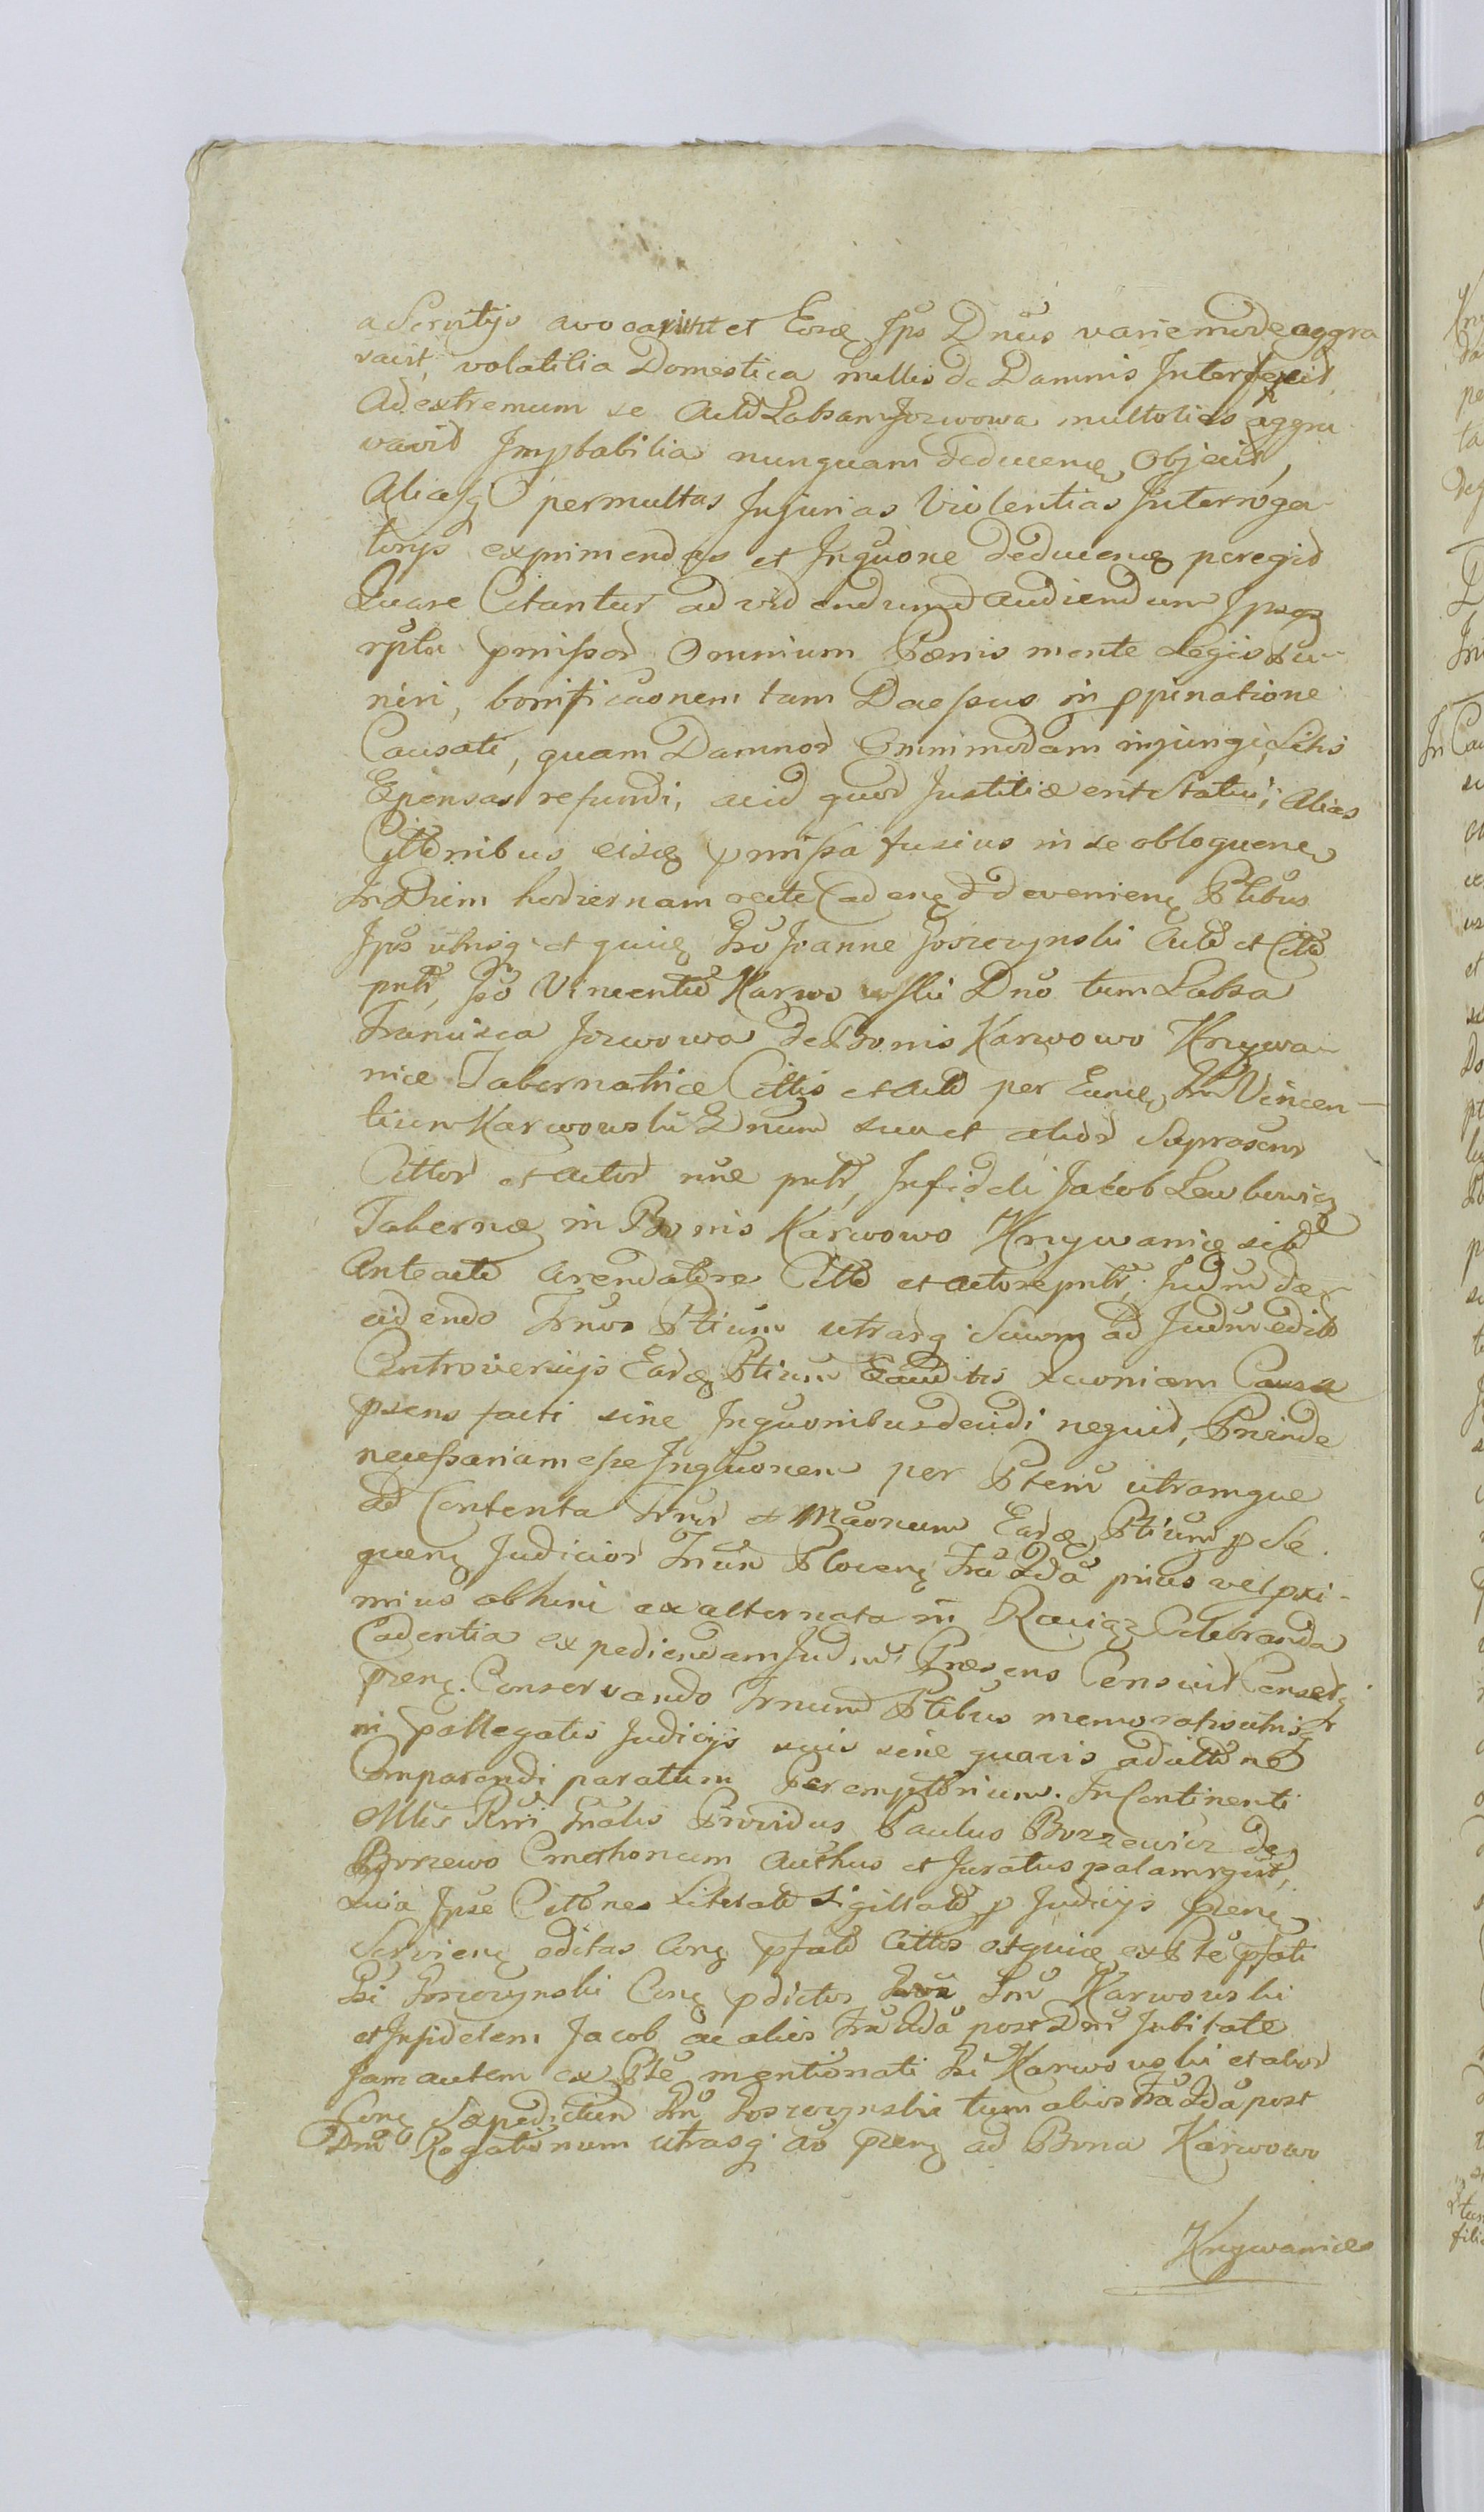 a Servitijs avocavit et Eosq Ipö Dnüs varie mode aggra
vavit, volatilia Domestica nullis de Damnis Interfecit
Ad extremum se Actd Labsam Jozwowa multoties aggra
vavit Improbabilia nunquam deducenq Objecit,
Aliasq permultas Injurias Violentias Interroga-
torijs exprimendas et Inquone deducenq peregit
Quare Citantur ad videndum audiendum Ipsos
rpla pmissor Omnium Pænis mente Legis pu-
niri, bonificaonem tam Daessus in ppinatione
Causati, quam Damnor Omnimodam injungi, Litis
Expensas refundi, acid quod Justitiæ erit Statui, Alias
Cittönibus eisq pmissa fusius in se obloquenq
In Diem hodiernam recte Cadenq & devenienq Ptibus
Ipis utrisq et quiq Gso Joanne Goszczynski Actd et Citd
pntr, Gso Vincentio Karwowski Dno tum Labsa
Francisca Jozwowa de Bonis Karwowo Krzywa-
nice Tabernatrice Cittis et Actd per Eunq Gn Vincen-
tium Karwowski Dnum suu et alior Suprascur
Cittor et Actor nne pntr, Infideli Jacob Lewkowicz
Tabernæ in Bonis Karwowo Krzywanicq sitæ
Anteacto Arendatore Citto et actore pntr, Judm de-
cidendo Trnos Ptium utrarq Suum ad Judm edito
Controversijs Earq Ptium Exauditis quoniam Causa
psens facti sine Inquonibus decidi nequit, Proinde
necessariam esse Inquonem per Ptem utramque
ad Contenta Trnor et Maonum Earq Ptium p Se-
quenq Judicior Trun Plocenq Fra 2da prius vel pxi-
mius abhinc ex alternata in Raciąz Celebranda
Cadentia expediendam Judm Præsens Censuit Censetq
prenq. Conservando Trnum Ptibus memoratis utrisq
in pallegatis Judicijs suis sine quavis adcittone
Comparendi paratum Peremptorium. In Continenti
Mtis Rni Gnalis Providus Paulus Borzewicz de
Borzewo Cmethonum Authus et Juratus palam rgvit,
quia Ipse Cittönes Literatd Sigillatd p Judicijs prenq
Servienq editas Conq pfatd Cittos et quiq ex Pte pfati
Gsi Goszczynski Conq pdictos Gsn Karwowski
et Infidelem Jacob ac alios Fra 2da post Dm Jubilate
Jam autem ex Pte mentionati Gsi Karwowski et alior
Conq Sæpedictum Gn Goszczynski tum alios Fra 2da post
Dm Rogationum utrasq Ao prenq ad Bona Karwowo
Krzywanice